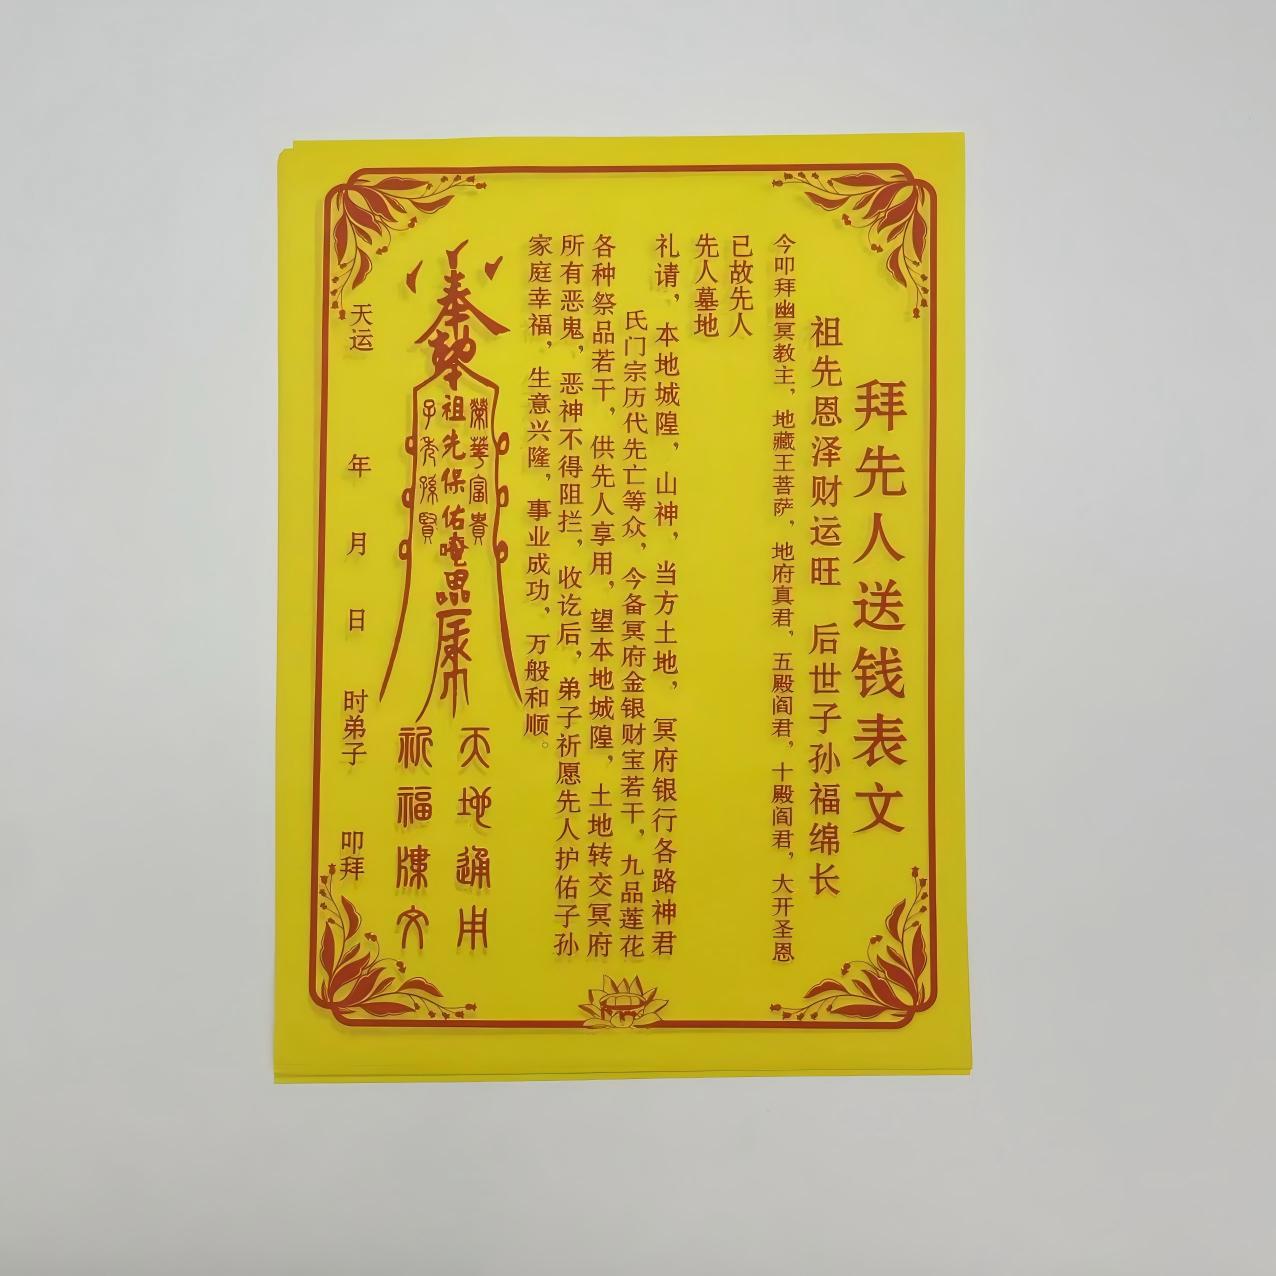 拜先人送钱表文
祖先恩泽财运旺 后世子孙福绵长
今叩拜幽冥教主，地藏王菩萨，地府真君，五殿阎君，十殿阎君，大开圣恩
已故先人
先人墓地
礼请，本地城隍，山神，当方土地，冥府银行各路神君
氏门宗历代先亡等众，今备冥府金银财宝若干，九品莲花
各种祭品若干，供先人享用，望本地城隍，土地转交冥府
所有恶鬼，恶神不得阻拦，收讫后，弟子祈愿先人护佑子孙
家庭幸福，生意兴隆，事业成功，万般和顺。
奉
榮華富貴
祖先保佑
子秀孫賢
天地通用
祈福文
天运 年 月 日 时弟子 叩拜